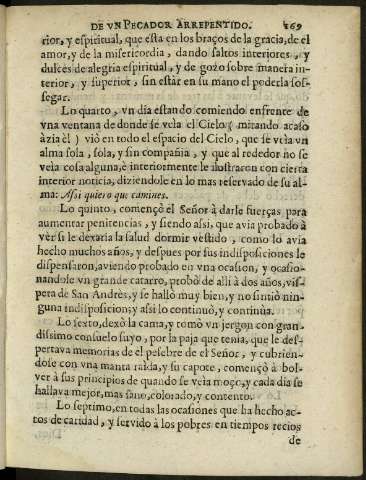 DE VN PECADOR ARREPENTIDO. 269
rior, y espiritual, que esta en los braços de la gracia, de el
amor, y de la misericordia, dando saltos interiores, y
dulces de alegria espiritual, y de gozo sobre manera in-
terior, y superior, sin estar en su mano el poderla sos-
segar.
Lo quarto, vn dia estando comiendo enfrente de
vna ventana de donde se veìa el Cielo (mirando acaso
àzia èl) viò en todo el espacio del Cielo, que se veìa vn
alma sola, sola, y sin compañia, y que al rededor no se
veìa cosa alguna, è interiormente le ilustraron con cierta
interior noticia, diziendole en lo mas reservado de su al-
ma: Assi quiero que camines.
Lo quinto, començò el Señor à darle fuerças para
aumentar penitencias, y siendo assi, que avia probado à
vèr si le dexaria la salud dormir vestido, como lo avia
hecho muchos años, y despues por sus indisposiciones le
dispensaron, aviendo probado en vna ocasion, y ocasio-
nandole vn grande catarro, probò de alli à dos años, vis-
pera de San Andrès, y se hallò muy bien, y no sintiò nin-
guna indisposicion; y assi lo continuò, y continùa.
Lo sexto, dexò la cama, y tomò vn jergon con gran-
dissimo consuelo suyo, por la paja que tenia, que le des-
pertava memorias de el pesebre de el Señor, y cubrien-
dose con vna manta raìda, y su capote, començò à bol-
ver à sus principios de quando se veia moço, y cada dia se
hallava mejor, mas sano, colorado, y contento.
Lo septimo, en todas las ocasiones que ha hecho ac-
tos de caridad, y servido à los pobres en tiempos recios
de